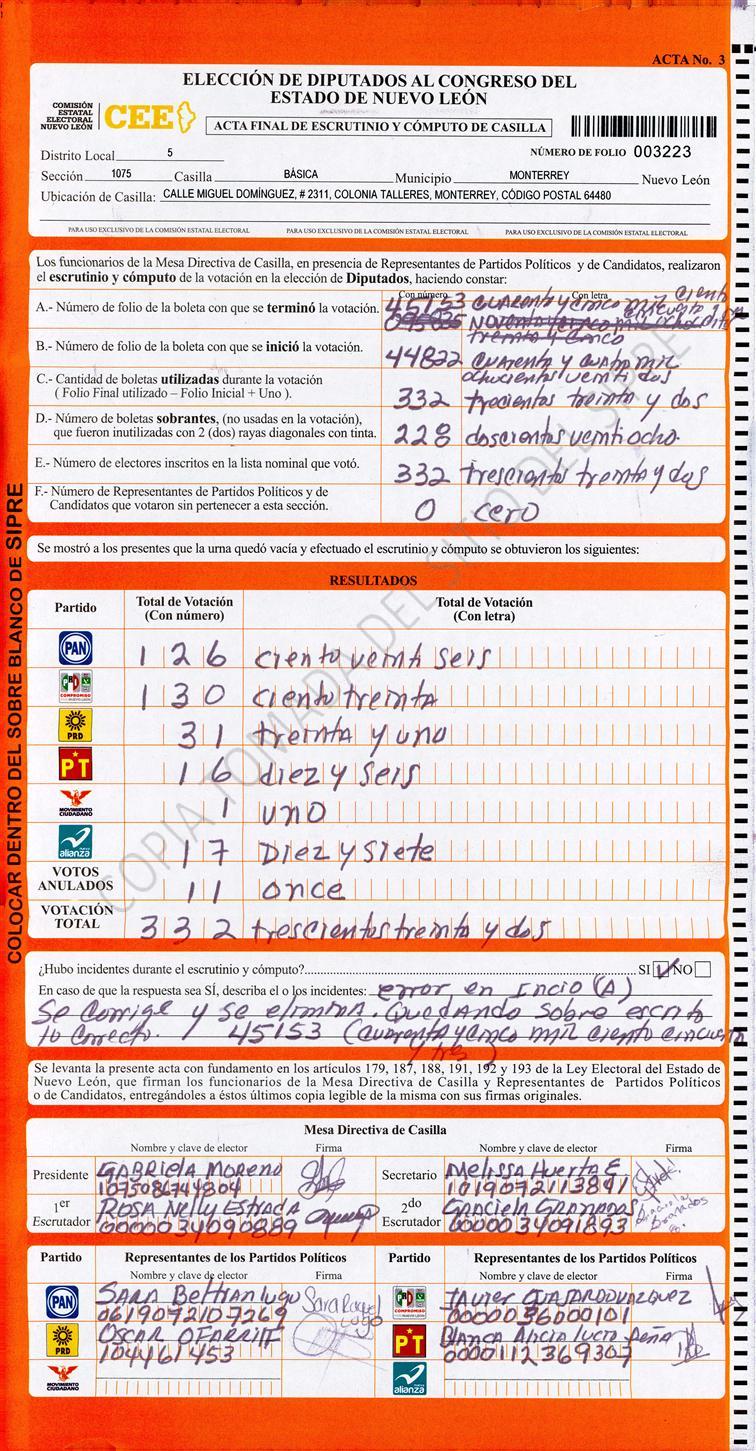 ACTA No. 3
ELECCIÓN DE DIPUTADOS AL CONGRESO DEL
ESTADO DE NUEVO LEÓN
COMISIÓN
ESTATAL
ELECTORAL
NUEVO LEÓN
CEE
ACTA FINAL DE ESCRUTINIO Y CÓMPUTO DE CASILLA
Distrito Local 5 NÚMERO DE FOLIO 003223
Sección 1075 Casilla BÁSICA Municipio MONTERREY Nuevo León
Ubicación de Casilla: CALLE MIGUEL DOMÍNGUEZ, # 2311, COLONIA TALLERES, MONTERREY, CÓDIGO POSTAL 64480
PARA USO EXCLUSIVO DE LA COMISIÓN ESTATAL ELECTORAL PARA USO EXCLUSIVO DE LA COMISIÓN ESTATAL ELECTORAL PARA USO EXCLUSIVO DE LA COMISIÓN ESTATAL ELECTORAL
Los funcionarios de la Mesa Directiva de Casilla, en presencia de Representantes de Partidos Políticos y de Candidatos, realizaron
el escrutinio y cómputo de la votación en la elección de Diputados, haciendo constar:
Con número Con letra
A.- Número de folio de la boleta con que se terminó la votación. 45153 cuarenta y cinco mil ciento
cincuenta y tres
treinta y cinco
B.- Número de folio de la boleta con que se inició la votación. 44822 cuarenta y cuatro mil
ochocientos veinti dos
C.- Cantidad de boletas utilizadas durante la votación
( Folio Final utilizado – Folio Inicial + Uno ). 332 trecientos treinta y dos
D.- Número de boletas sobrantes, (no usadas en la votación),
que fueron inutilizadas con 2 (dos) rayas diagonales con tinta. 228 doscientos veintiocho.
E.- Número de electores inscritos en la lista nominal que votó. 332 trescientos treinta y dos
F.- Número de Representantes de Partidos Políticos y de
Candidatos que votaron sin pertenecer a esta sección. 0 cero
Se mostró a los presentes que la urna quedó vacía y efectuado el escrutinio y cómputo se obtuvieron los siguientes:
RESULTADOS
Partido Total de Votación (Con número) Total de Votación (Con letra)
PAN 126 ciento veinti seis
PRI COMPROMISO 130 ciento treinta
PRD 31 treinta y uno
PT 16 diez y seis
MOVIMIENTO CIUDADANO 1 uno
alianza 17 Diez y siete
VOTOS ANULADOS 11 once
VOTACIÓN TOTAL 332 trescientos treinta y dos
¿Hubo incidentes durante el escrutinio y cómputo? SI NO
En caso de que la respuesta sea SÍ, describa el o los incidentes: error en Incio (A)
Se Corrige y se elimina. Quedando Sobre escrito
lo Correcto. 45153 (Cuarenta y cinco mil ciento cincuenta
y tres)
Se levanta la presente acta con fundamento en los artículos 179, 187, 188, 191, 192 y 193 de la Ley Electoral del Estado de
Nuevo León, que firman los funcionarios de la Mesa Directiva de Casilla y Representantes de Partidos Políticos
o de Candidatos, entregándoles a éstos últimos copia legible de la misma con sus firmas originales.
Mesa Directiva de Casilla
Nombre y clave de elector Firma Nombre y clave de elector Firma
Presidente GABRIELA MORENO Secretario Melissa Huerta E
1075086744804 1019072113841
1er Escrutador ROSA Nelly Estrada 2do Escrutador Graciela GRANADAS
0000034090889 0000034091893
Partido Representantes de los Partidos Políticos Partido Representantes de los Partidos Políticos
Nombre y clave de elector Firma Nombre y clave de elector Firma
PAN SARA Lugo Sara Raquel Lugo
0619072107269
PRI COMPROMISO Javier
0000036000101
PRD OSCAR OFARRIll
104461453
PT Blanca Alicia Peña
0000112369307
MOVIMIENTO CIUDADANO
alianza
COLOCAR DENTRO DEL SOBRE BLANCO DE SIPRE
COPIA TOMADA DEL SITIO DEL SIPRE